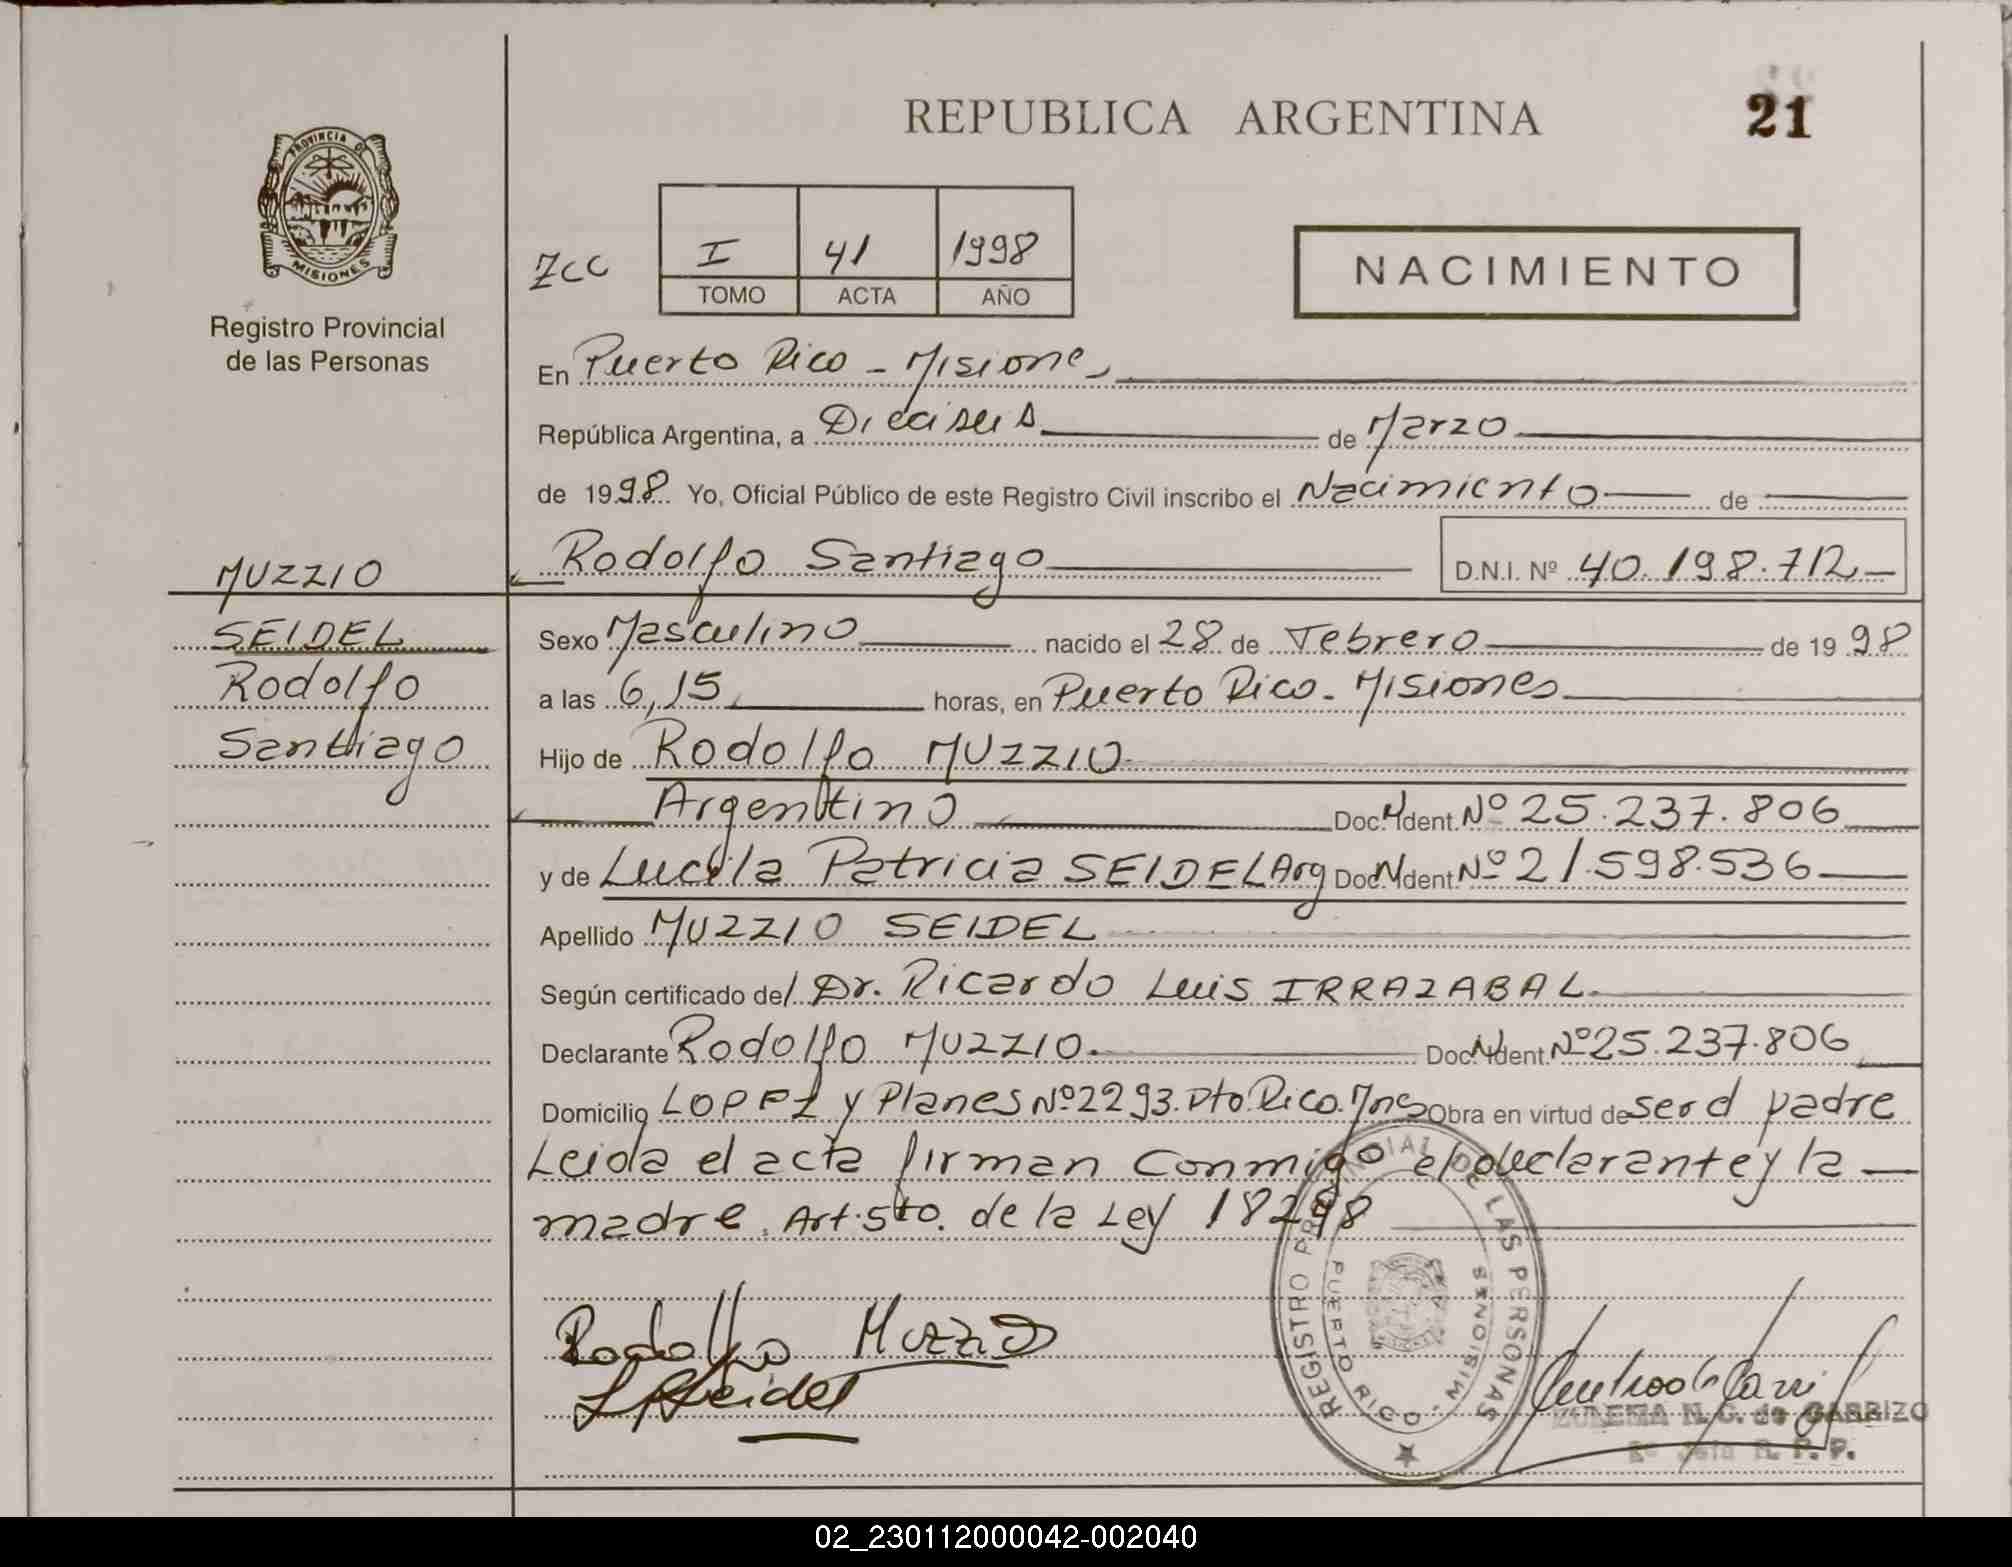 REPUBLICA ARGENTINA
21
PROVINCIA D
MISIONES
Registro Provincial
de las Personas
ZCC
I 41 1998
TOMO ACTA AÑO
NACIMIENTO
En Puerto Rico - Misiones
República Argentina, a Dieciseis de Marzo
de 1998 Yo, Oficial Público de este Registro Civil inscribo el Nacimiento de
Rodolfo Santiago D.N.I. Nº 40.198.712
MUZZIO
SEIDEL
Rodolfo
Santiago
Sexo Masculino nacido el 28 de Febrero de 1998
a las 6,15 horas, en Puerto Rico - Misiones
Hijo de Rodolfo MUZZIO
Argentino Doc. Ident. Nº 25.237.806
y de Lucila Patricia SEIDEL Arg Doc. Ident. Nº 21.598.536
Apellido MUZZIO SEIDEL
Según certificado del Dr. Ricardo Luis IRRAZABAL
Declarante Rodolfo MUZZIO Doc. Ident. Nº 25.237.806
Domicilio LOPEZ y Planes Nº 2293. Pto. Rico. Mnes Obra en virtud de ser el padre
Leida el acta firman conmigo el declarante y la
madre. Art. 5to. de la Ley 18298
Rodolfo Muzzio
L P Seidel
REGISTRO PROVINCIAL DE LAS PERSONAS
PUERTO RICO - MISIONES
ZULEMA N. G. de CARRIZO
R. P. P.
02_230112000042-002040